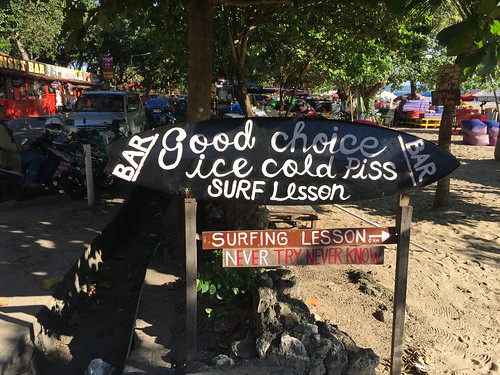 BAR
Good choice
ice cold Piss
SURF Lesson
BAR
SURFING LESSON
NEVER TRY NEVER KNOW
BAR